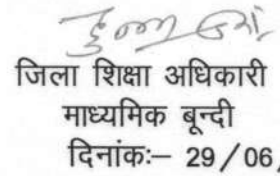 जिला शिक्षा अधिकारी
माध्यमिक बून्दी
दिनांकः– 29/06